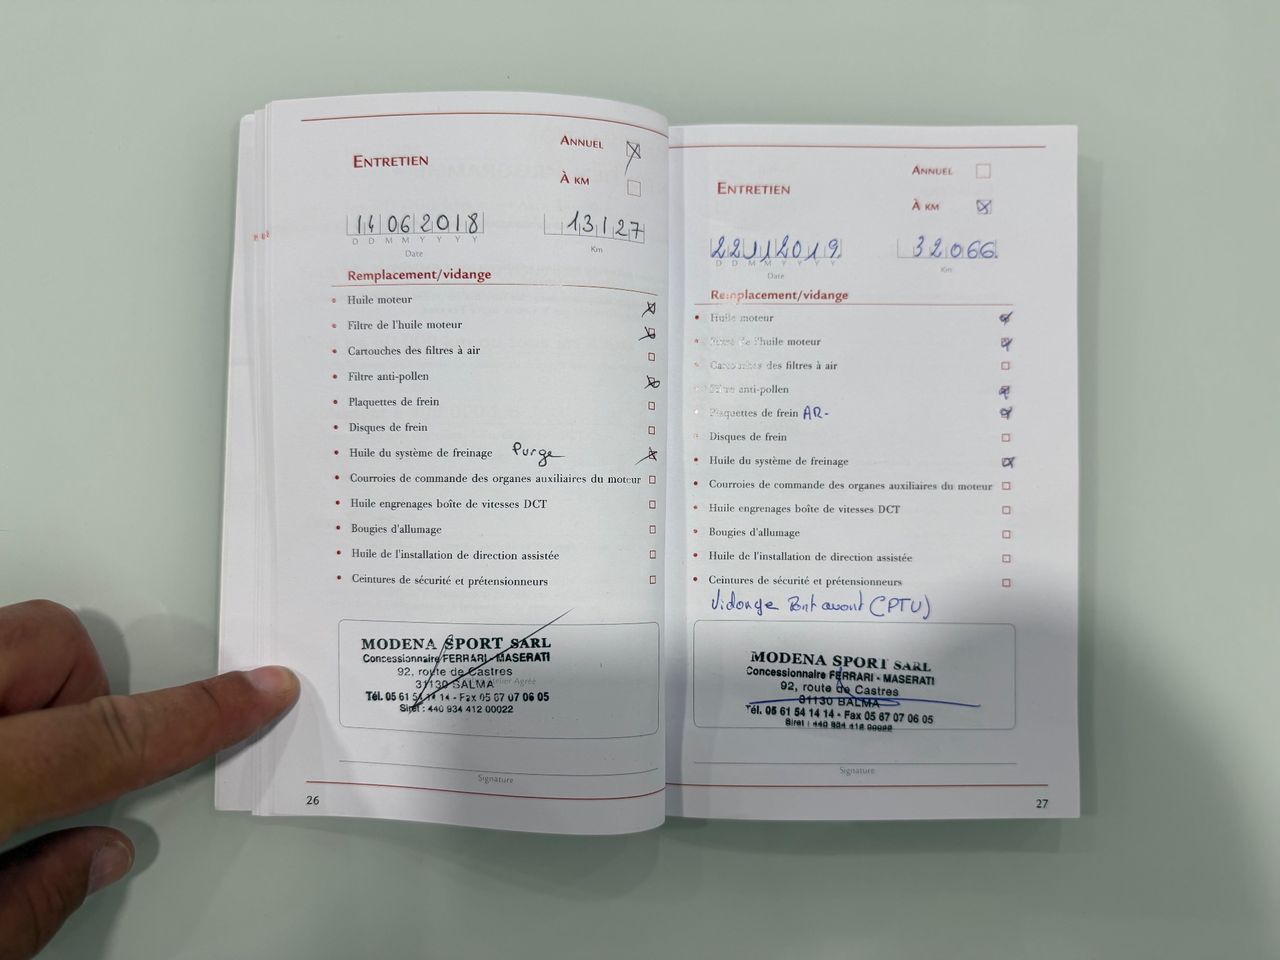 Entretien
Annuel
À km
14062018
13127
D D M M Y Y Y Y
Date
Km
Remplacement/vidange
Huile moteur
Filtre de l'huile moteur
Cartouches des filtres à air
Filtre anti-pollen
Plaquettes de frein
Disques de frein
Huile du système de freinage Purge
Courroies de commande des organes auxiliaires du moteur
Huile engrenages boîte de vitesses DCT
Bougies d'allumage
Huile de l'installation de direction assistée
Ceintures de sécurité et prétensionneurs
MODENA SPORT SARL
Concessionnaire FERRARI - MASERATI
92, route de Castres
31130 BALMA
Tél. 05 61 54 14 14 - Fax 05 67 07 06 05
Siret : 440 934 412 00022
Signature
26
Entretien
Annuel
À km
22112019
32066
D D M M Y Y Y Y
Date
Km
Remplacement/vidange
Huile moteur
Filtre de l'huile moteur
Cartouches des filtres à air
Filtre anti-pollen
Plaquettes de frein AR-
Disques de frein
Huile du système de freinage
Courroies de commande des organes auxiliaires du moteur
Huile engrenages boîte de vitesses DCT
Bougies d'allumage
Huile de l'installation de direction assistée
Ceintures de sécurité et prétensionneurs
Vidange Pont avant (PTU)
MODENA SPORT SARL
Concessionnaire FERRARI - MASERATI
92, route de Castres
31130 BALMA
Tél. 05 61 54 14 14 - Fax 05 67 07 06 05
Siret : 440 934 412 00022
Signature
27